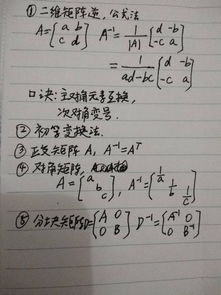 ① 二维矩阵逆，公式法
A = [a b; c d]  A⁻¹ = 1/|A| [d -b; -c a]
= 1/(ad-bc) [d -b; -c a]
口诀：主对角元素互换，
次对角变号.
② 初等变换法.
③ 正交矩阵 A, A⁻¹=Aᵀ
④ 对角矩阵,
A = [a b c], A⁻¹ = [1/a 1/b 1/c]
⑤ 分块矩阵D = [A 0; 0 B] D⁻¹ = [A⁻¹ 0; 0 B⁻¹]